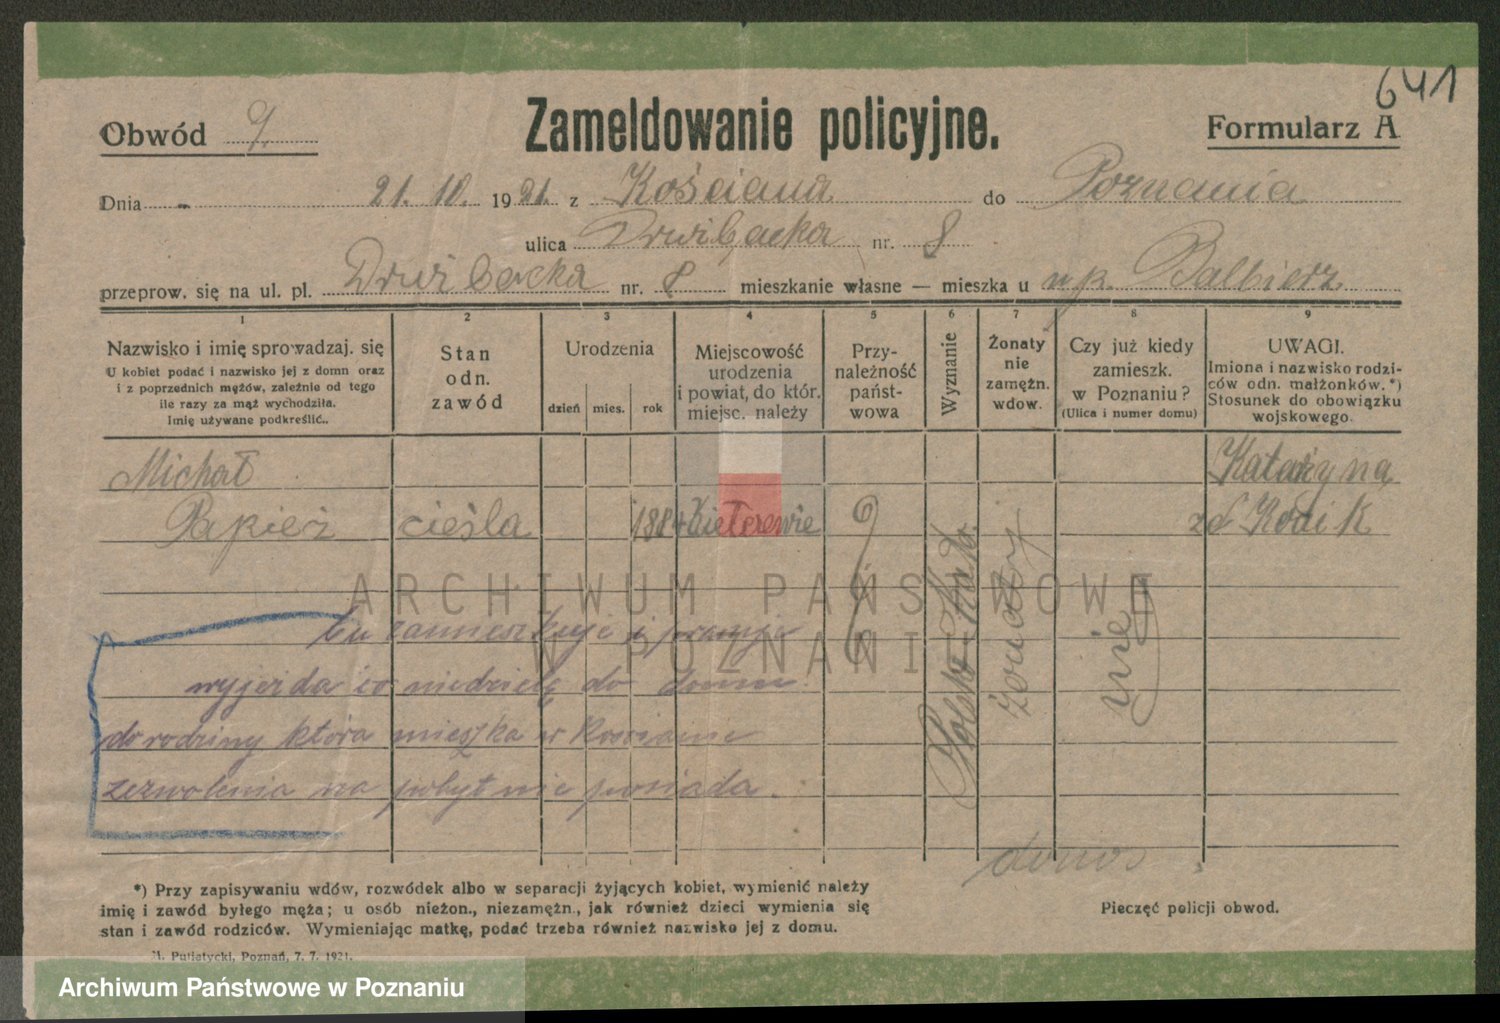 641
Obwód 9.
Zameldowanie policyjne.
Formularz A
Dnia 21. 10. 1921. z Kościana do Poznania
ulica nr. 8
przeprow. się na ul. pl. nr. 8 mieszkanie własne — mieszka u p. Balbierz
1 2 3 4 5 6 7 8 9
Nazwisko i imię sprowadzaj. się
U kobiet podać i nazwisko jej z domn oraz
i z poprzednich mężów, zależnie od tego
ile razy za mąż wychodziła.
Imię używane podkreślić..
Stan
odn.
zawód
Urodzenia
dzień mies. rok
Miejscowość
urodzenia
i powiat, do któr.
miejsc. należy
Przy-
należność
państ-
wowa
Wyznanie
Żonaty
nie
zamężn.
wdow.
Czy już kiedy
zamieszk.
w Poznaniu?
(Ulica i numer domu)
UWAGI.
Imiona i nazwisko rodzi-
ców odn. małżonków.*)
Stosunek do obowiązku
wojskowego.
Michał
Papież cieśla 1884
Katarzyna
zd Kozik
żonaty
nie
tu zamieszkuje i pracuje
wyjezda co niedzielę do domu
do rodziny która mieszka w Kościanie
zezwolenia na pobyt nie posiada.
ARCHIWUM PAŃSTWOWE
W POZNANIU
*) Przy zapisywaniu wdów, rozwódek albo w separacji żyjących kobiet, wymienić należy
imię i zawód byłego męża; u osób nieżon., niezamężn., jak również dzieci wymienia się
stan i zawód rodziców. Wymieniając matkę, podać trzeba również nazwisko jej z domu.
Pieczęć policji obwod.
Poznań, 7. 7. 1921.
Archiwum Państwowe w Poznaniu